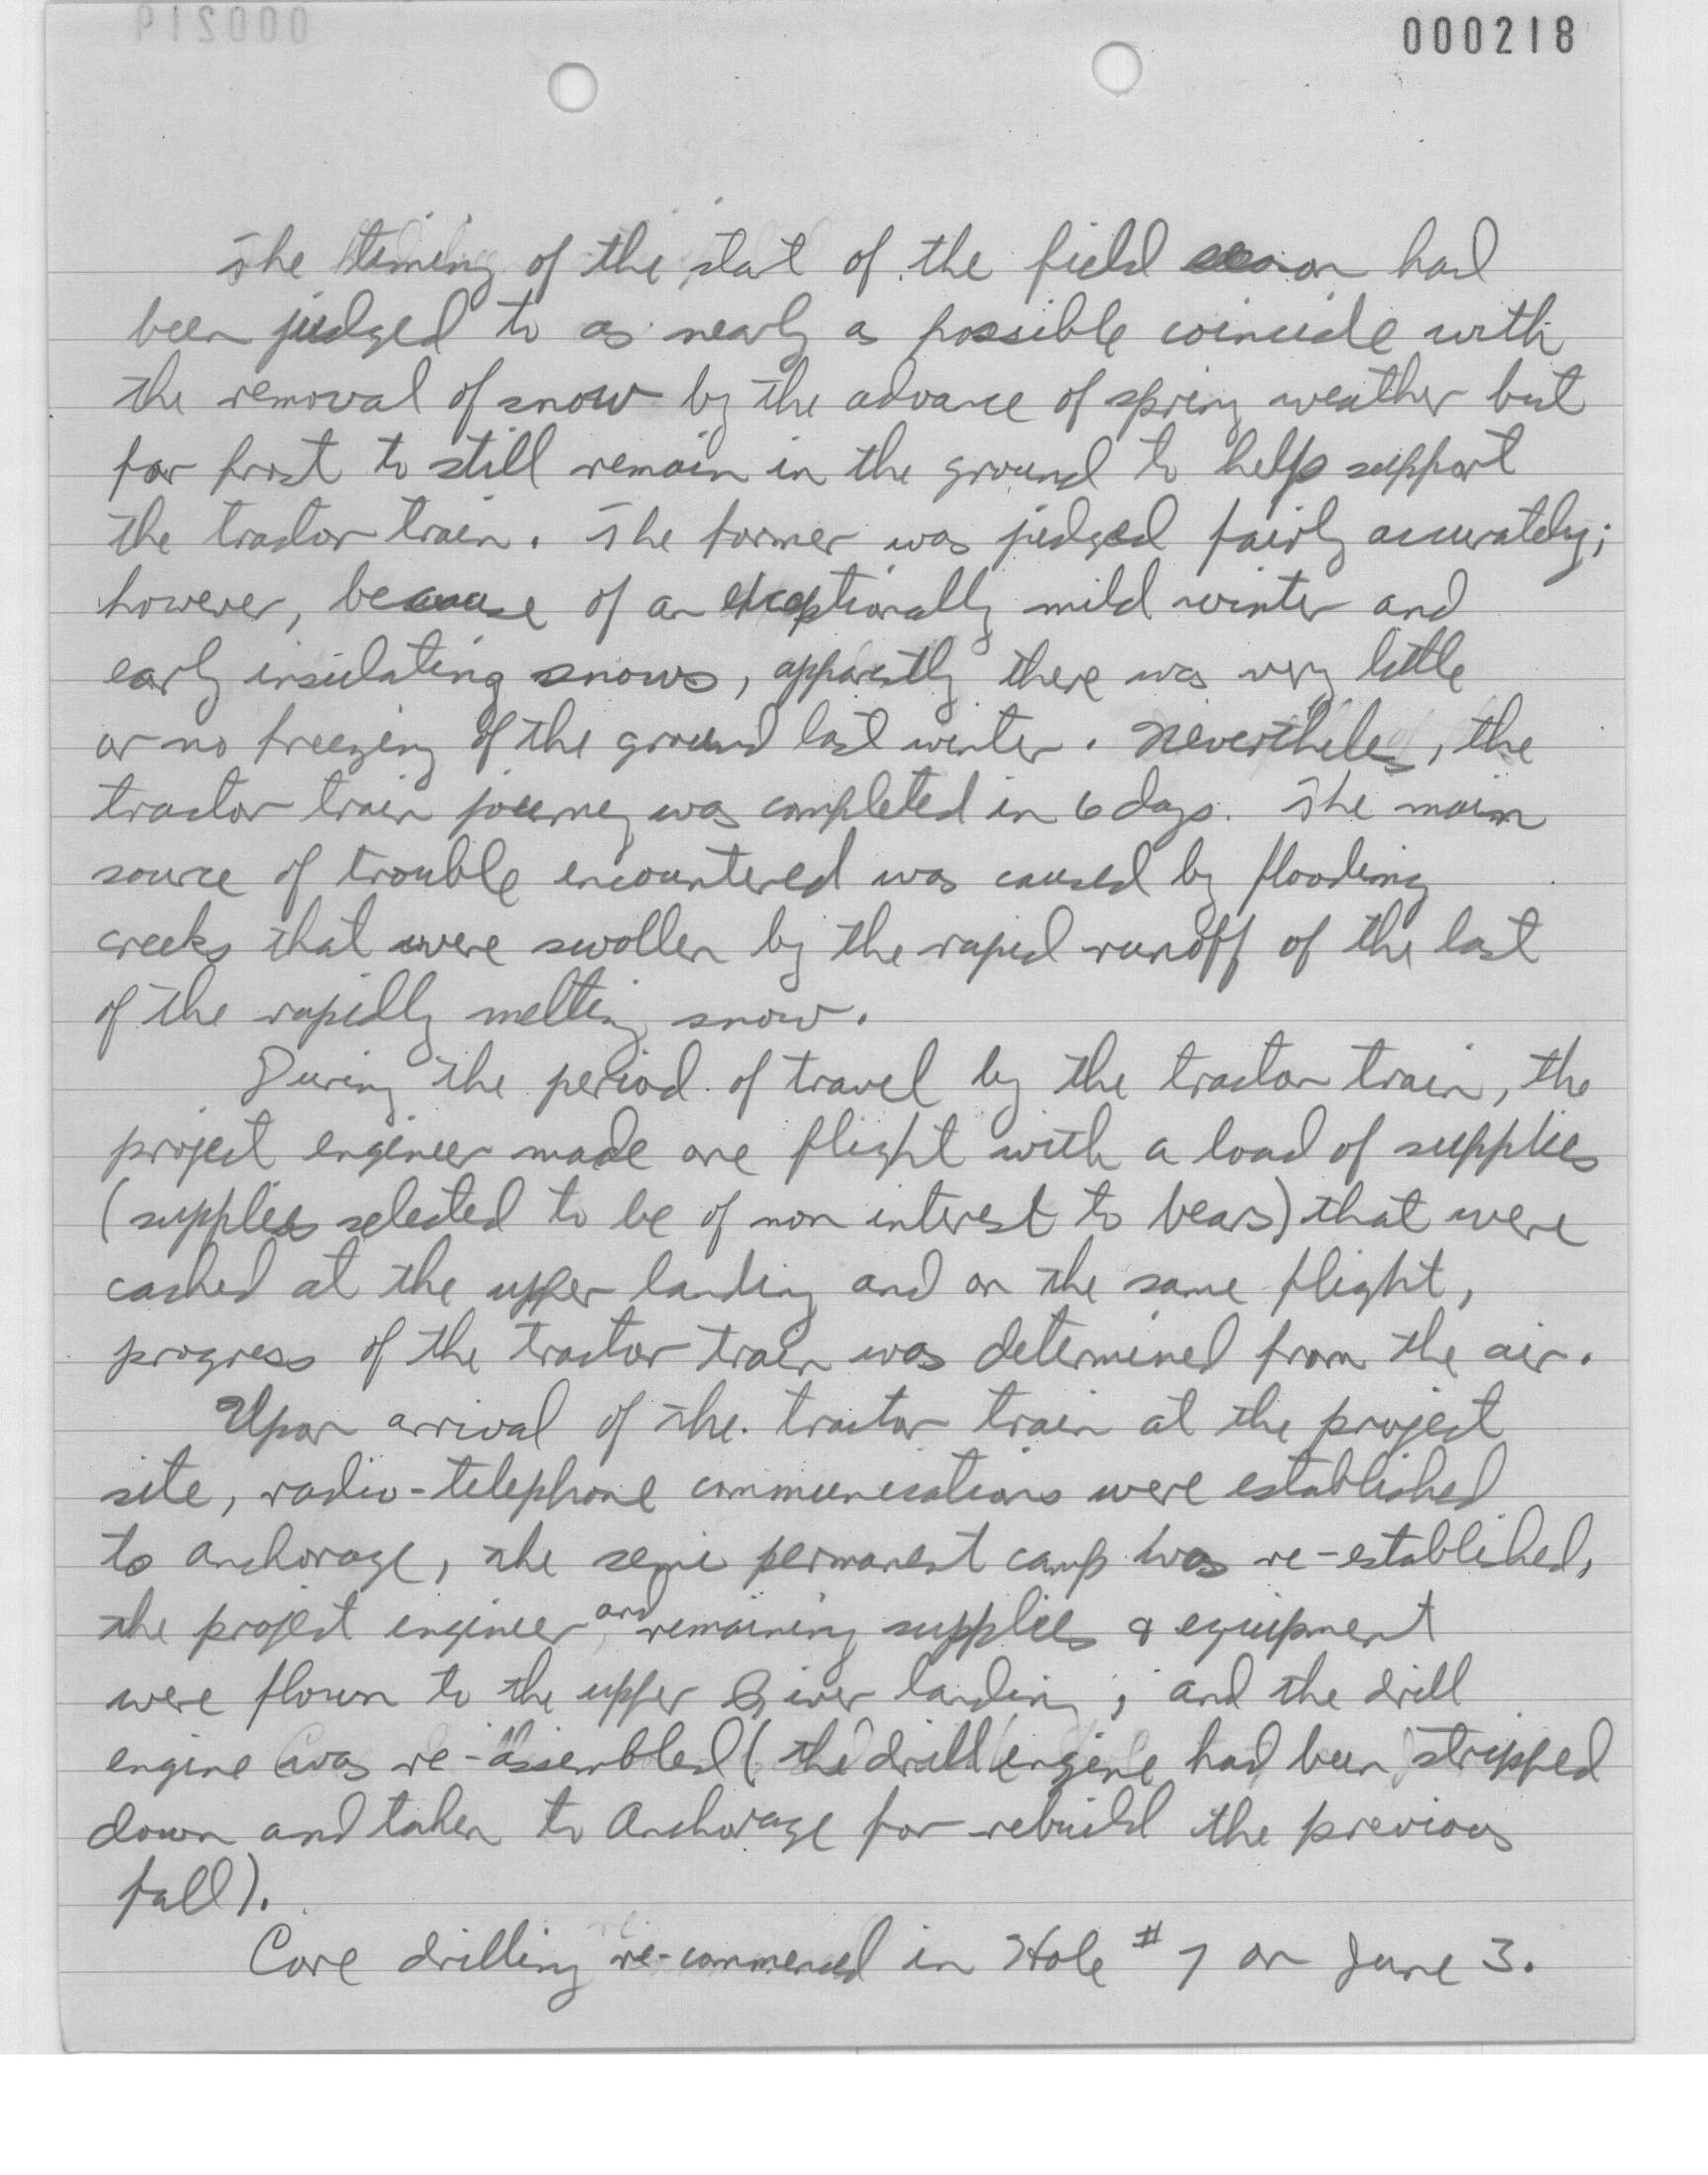 000218
The timing of the start of the field season had
been judged to as nearly as possible coincide with
the removal of snow by the advance of spring weather but
for frost to still remain in the ground to help support
the tractor train. The former was judged fairly accurately;
however, because of an exceptionally mild winter and
early insulating snows, apparently there was very little
or no freezing of the ground last winter. Nevertheless, the
tractor train journey was completed in 6 days. The main
source of trouble encountered was caused by flooding
creeks that were swollen by the rapid runoff of the last
of the rapidly melting snow.
During the period of travel by the tractor train, the
project engineer made one flight with a load of supplies
(supplies selected to be of non interest to bears) that were
cached at the upper landing and on the same flight,
progress of the tractor train was determined from the air.
Upon arrival of the tractor train at the project
site, radio-telephone communications were established
to Anchorage, the semi permanent camp was re-established,
the project engineer, and remaining supplies & equipment
were flown to the upper River landing; and the drill
engine was re-assembled (the drill engine had been stripped
down and taken to Anchorage for rebuild the previous
fall).
Core drilling re-commenced in Hole # 7 on June 3.